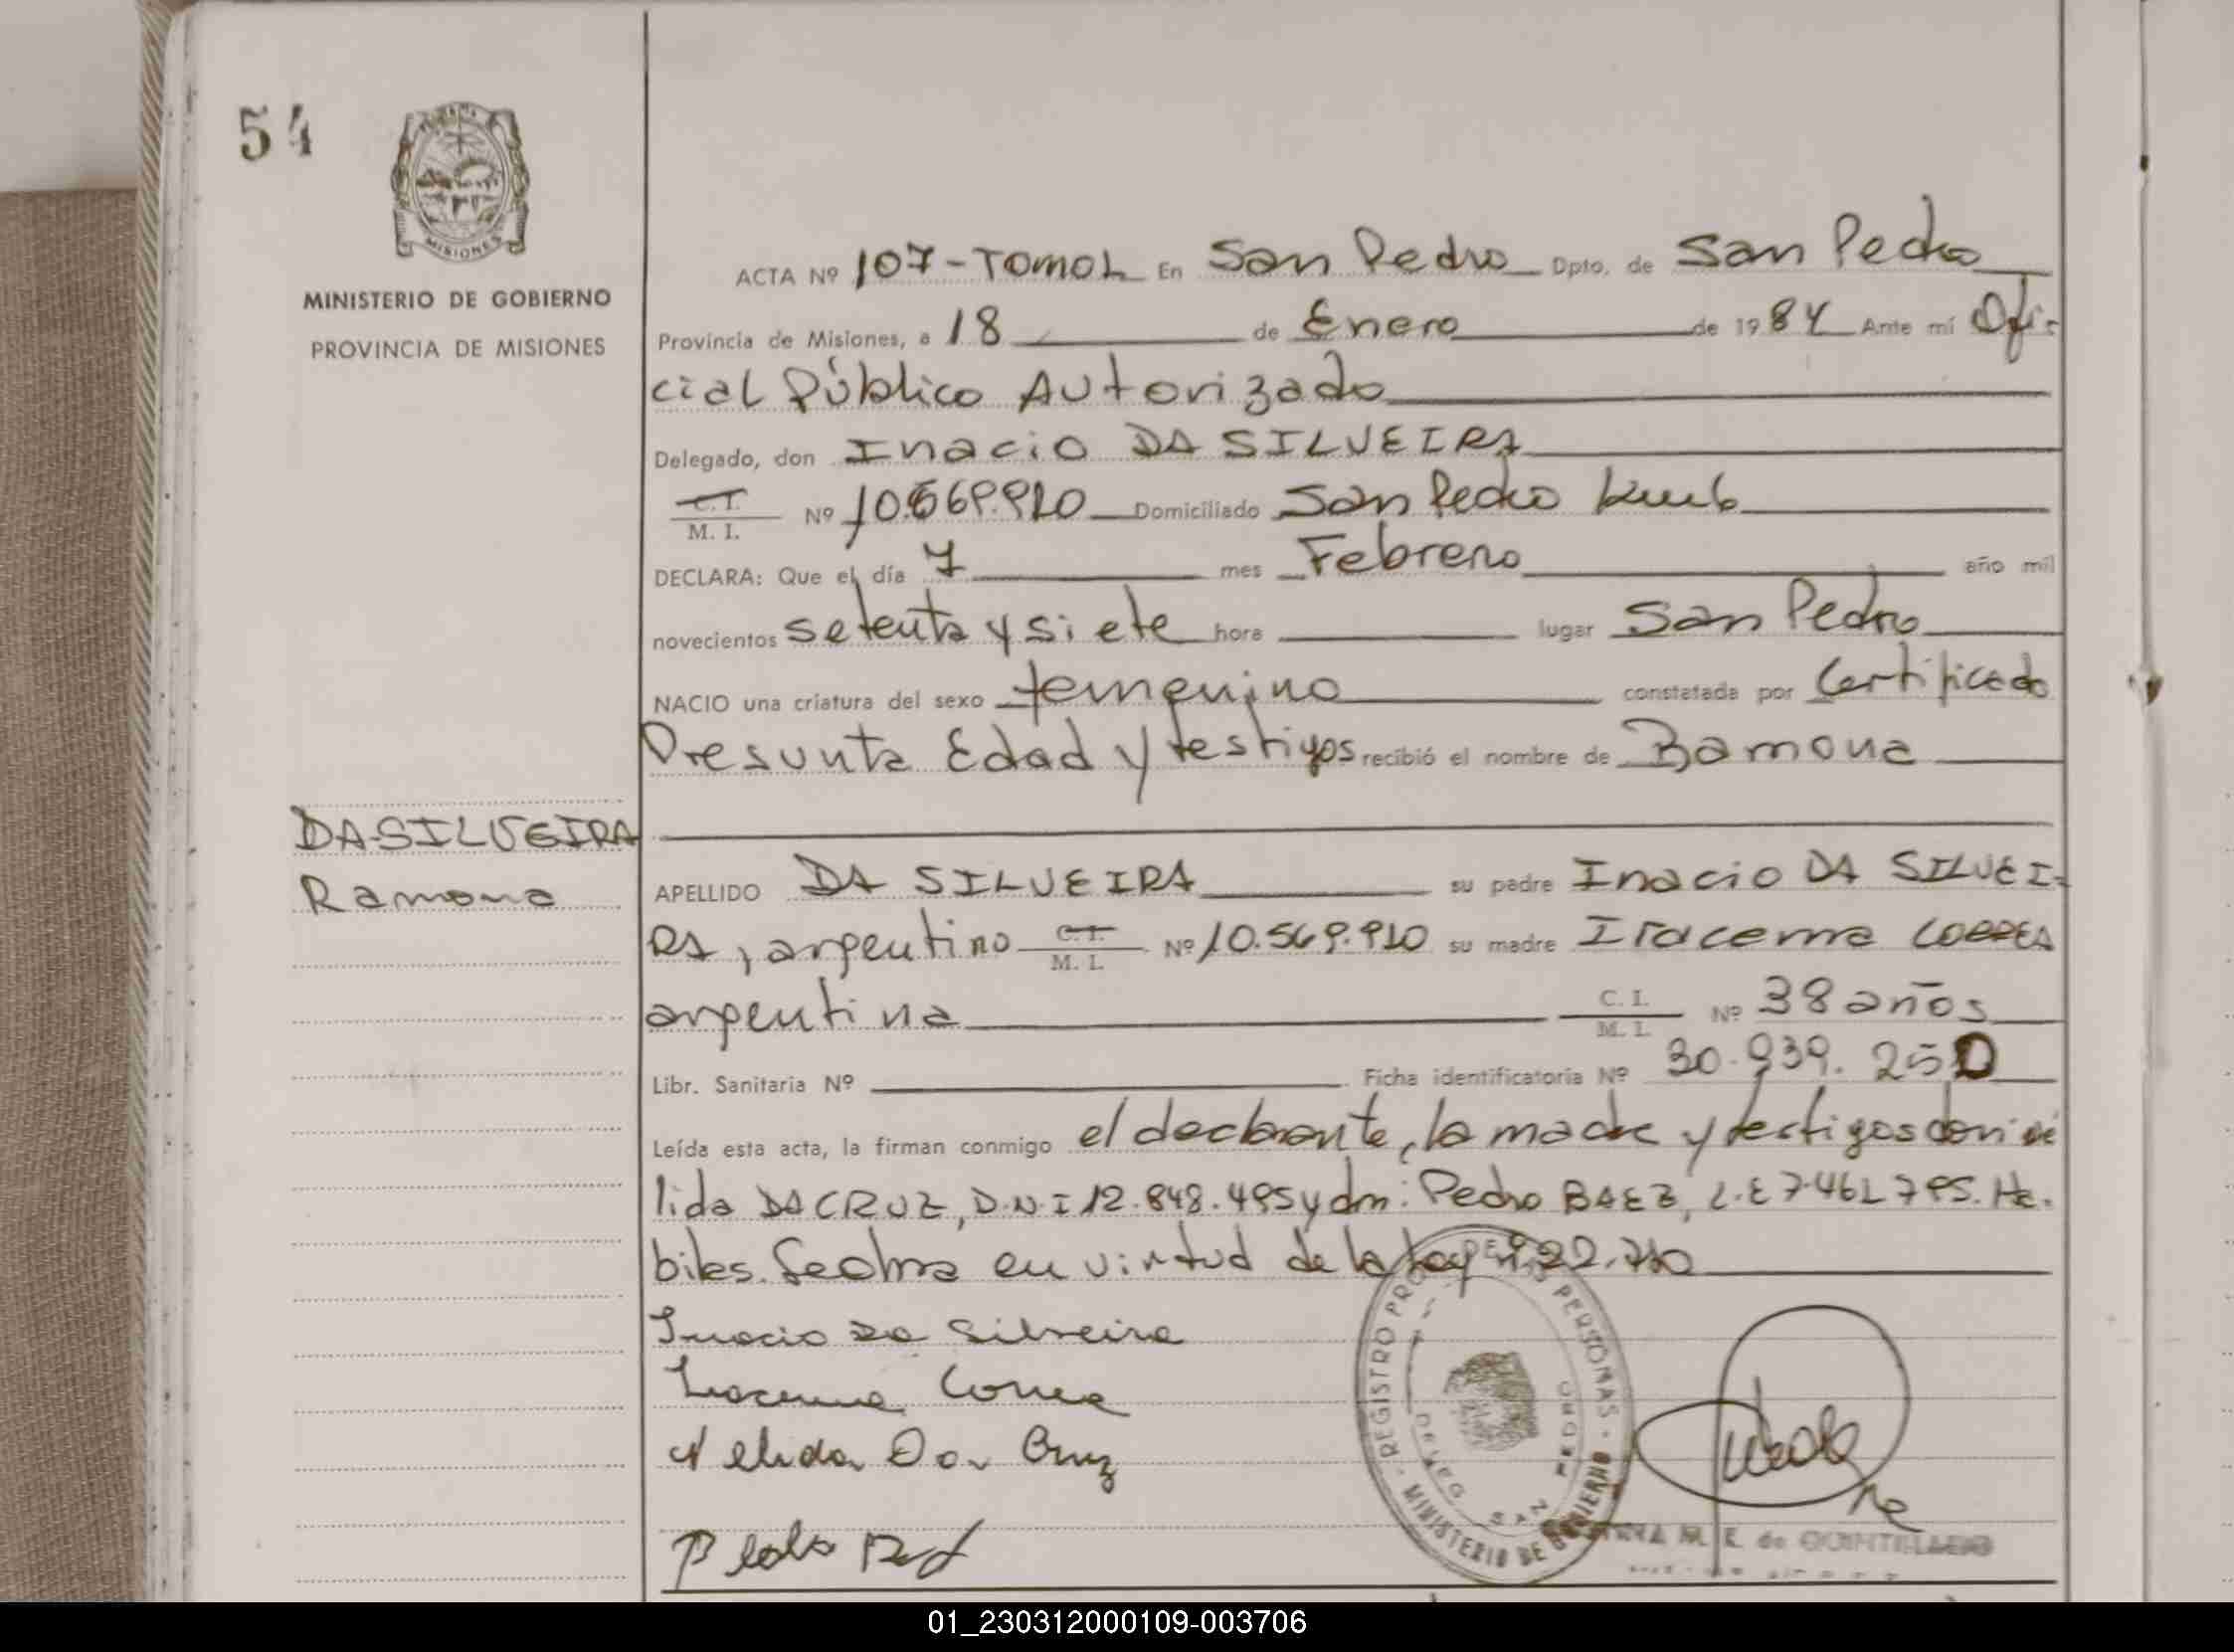 54
MISIONES
MINISTERIO DE GOBIERNO
PROVINCIA DE MISIONES
ACTA Nº 107-TOMO I En San Pedro Dpto. de San Pedro
Provincia de Misiones, a 18 de Enero de 1984 Ante mí Ofi-
cial Público Autorizado
Delegado, don Inacio DA SILVEIRA
C.I. / M. I. Nº 10.569.910 Domiciliado San Pedro
DECLARA: Que el día 7 mes Febrero año mil
novecientos setenta y siete hora lugar San Pedro
NACIO una criatura del sexo femenino constatada por Certificado
Presunta Edad y testigos recibió el nombre de Ramona
DA SILVEIRA
Ramona
APELLIDO DA SILVEIRA su padre Inacio DA SILVEI-
RA, argentino C.I. / M. I. Nº 10.569.910 su madre Iracema CORREA
argentina C. I. / M. I. Nº 38 años
Libr. Sanitaria Nº Ficha identificatoria Nº 30.939.250
Leída esta acta, la firman conmigo el declarante, la madre y testigos doña Né
lida DA CRUZ, D.N.I 12.848.495 y don: Pedro BAEZ, L.E 7.461.795. Há-
biles. Se labra en virtud de la Ley nº 22.710
Inacio Da Silveira
Iracema Correa
Nelida Da Cruz
REGISTRO PERSONAS - MINISTERIO DE GOBIERNO
DELEG. SAN PEDRO
M. E. de QUINTELA
01_230312000109-003706